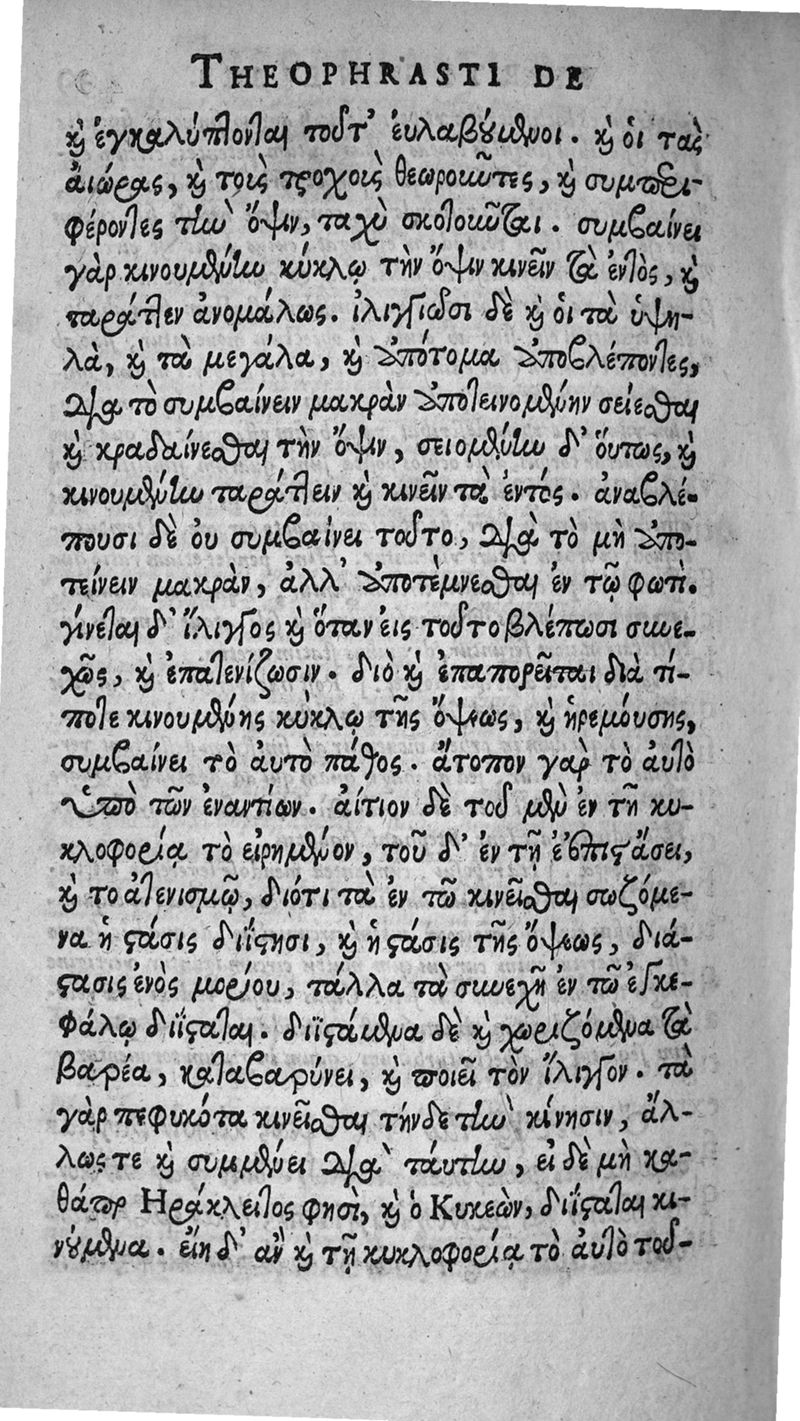 THEOPHRASTI DE
καὶ ἐγκαλύπτονται τοῦτ' ἐυλαβούμενοι. καὶ ὁι τὰς
ἀιώρας, καὶ τοὺς τροχοὺς θεωροῦντες, καὶ συμπερι-
φέροντες τὴν ὄψιν, ταχὺ σκοτοῦνται. συμβαίνει
γὰρ κινουμένην κύκλῳ τὴν ὄψιν κινεῖν τὰ ἐντὸς, καὶ
ταράττειν ἀνομάλως. ἰλιγγιῶσι δὲ καὶ ὁι τὰ ὑψη-
λὰ, καὶ τὰ μεγάλα, καὶ ἀπότομα ἀποβλέποντες,
διὰ τὸ συμβαίνειν μακρὰν ἀποτεινομένην σείεσθαι
καὶ κραδαίνεσθαι τὴν ὄψιν, σειομένην δ' ὅυτως, καὶ
κινουμένην ταράττειν καὶ κινεῖν τὰ ἐντός. ἀναβλέ-
πουσι δὲ ὀυ συμβαίνει τοῦτο, διὰ τὸ μὴ ἀπο-
τείνειν μακρὰν, ἀλλ' ἀποτέμνεσθαι ἐν τῷ φωτί.
γίνεται δ' ἴλιγγος καὶ ὅταν ἐις τοῦτο βλέπωσι συνε-
χῶς, καὶ ἐπατενίζωσιν. διὸ καὶ ἐπαπορεῖται διὰ τί-
ποτε κινουμένης κύκλῳ τῆς ὄψεως, καὶ ἠρεμούσης,
συμβαίνει τὸ ἀυτὸ πάθος. ἄτοπον γὰρ τὸ ἀυτὸ
ὑπὸ τῶν ἐναντίων. ἀίτιον δὲ τοῦ μὲν ἐν τῇ κυ-
κλοφορίᾳ τὸ ἐιρημένον, τοῦ δ' ἐν τῇ ἐπιστάσει,
καὶ το ἀτενισμῷ, διότι τὰ ἐν τῶ κινεῖσθαι σωζόμε-
να ἡ στάσις διΐστησι, καὶ ἡ στάσις τῆς ὄψεως, διά-
στασις ἑνὸς μορίου, τἄλλα τὰ συνεχῆ ἐν τῶ ἐγκε-
φάλῳ διΐσταται. διϊστάμενα δὲ καὶ χωριζόμενα τὰ
βαρέα, καταβαρύνει, καὶ ποιεῖ τὸν ἴλιγγον. τὰ
γὰρ πεφυκότα κινεῖσθαι τήνδε τὴν κίνησιν, ἄλ-
λως τε καὶ συμμένει διὰ ταύτην, ἐι δὲ μὴ κα-
θάπερ Ηράκλειτος φησὶ, καὶ ὁ Κυκεὼν, διΐσταται κι-
νούμενα. ἔιη δ' ἂν καὶ τῇ κυκλοφορίᾳ τὸ ἀυτὸ τοῦ-